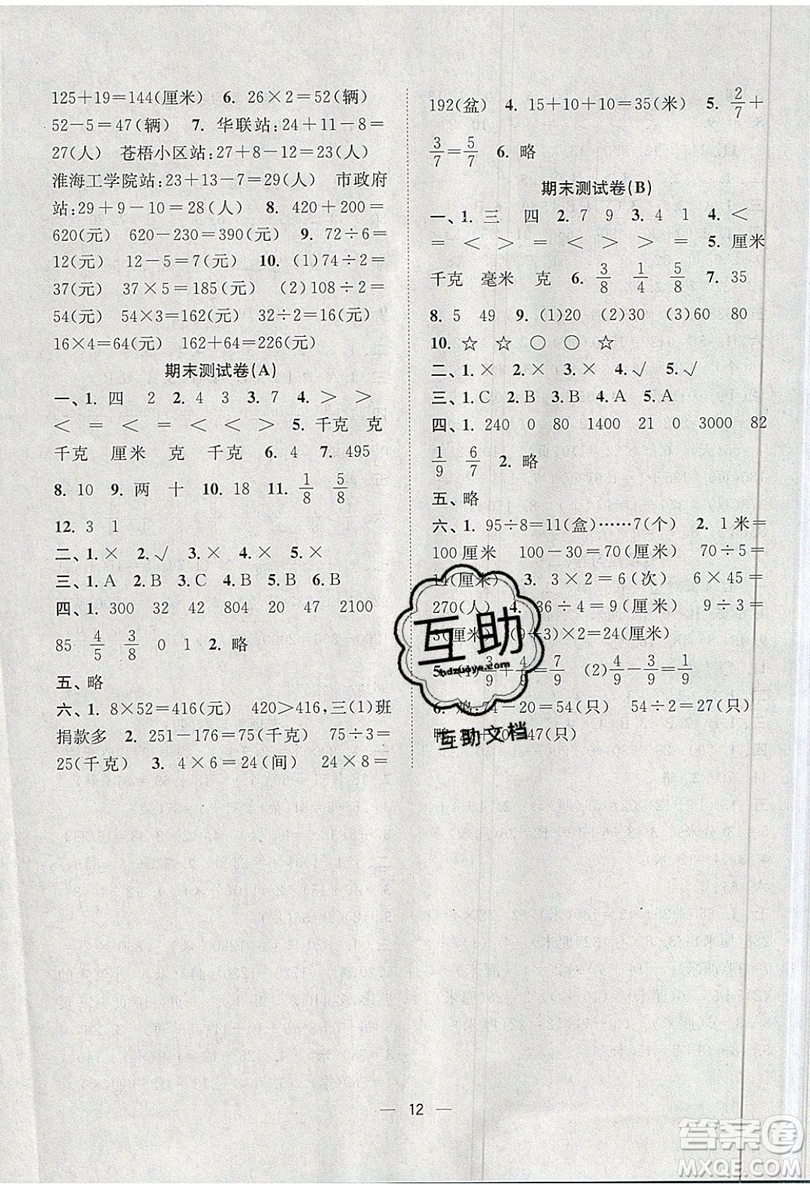 125＋19＝144(厘米)　6. 26×2＝52(辆)
52－5＝47(辆)　7. 华联站:24＋11－8＝
27(人)　苍梧小区站:27＋8－12＝23(人)
淮海工学院站:23＋13－7＝29(人)　市政府
站:29＋9－10＝28(人)　8. 420＋200＝
620(元)　620－230＝390(元)　9. 72÷6＝
12(元)　12－5＝7(元)　10. (1)74÷2＝
37(元)　37×5＝185(元)　(2)108÷2＝
54(元)　54×3＝162(元)　32÷2＝16(元)
16×4＝64(元)　162＋64＝226(元)
期末测试卷(A)
一、1. 四　2　2. 4　3　3. 7　4. ＞　＞
＜　＝　＜　＝　＜　＜　＞　5. 千克　克
千克　厘米　克　千克　6. 4　7. 495
8. 10　9. 两　十　10. 18　11. 1/8　5/8
12. 3　1
二、1. ×　2. √　3. ×　4. ×　5. ×
三、1. A　2. B　3. B　4. C　5. B
四、1. 300　32　42　804　20　47　2100
85　4/5　3/8　0　1　2. 略
五、略
六、1. 8×52＝416(元)　420＞416,三(1)班
捐款多　2. 251－176＝75(千克)　75÷3＝
25(千克)　3. 4×6＝24(间)　24×8＝
192(盆)　4. 15＋10＋10＝35(米)　5. 2/7＋
3/7＝5/7　6. 略
期末测试卷(B)
一、1. 三　四　2. 7　9　3. 4　1　4. ＜
＝　＜　＞　＝　＜　＞　＞　＝　5. 厘米
千克　毫米　克　6. 3/8　1/4　5/8　7. 35
8. 5　49　9. (1)20　(2)30　(3)60　80
10. ☆　☆　○　○　☆
二、1. ×　2. ×　3. ×　4. √　5. √
三、1. C　2. B　3. B　4. A　5. A
四、1. 240　0　80　1400　21　0　3000　82
1/9　6/7　2. 略
五、略
六、1. 95÷8＝11(盒)……7(个)　2. 1米＝
100厘米　100－30＝70(厘米)　70÷5＝
14(厘米)　3. 3×2＝6(次)　6×45＝
270(人)　4. 36÷4＝9(厘米)　9÷3＝
3(厘米)　(9＋3)×2＝24(厘米)
/9＋4/9＝7/9　(2)4/9－3/9＝1/9
6. 鹅:74－20＝54(只)　54÷2＝27(只)
鸭:　＋20＝47(只)
互助
5bdzuoye.com
互助文档
— 12 —
答案圈
MXQE.COM